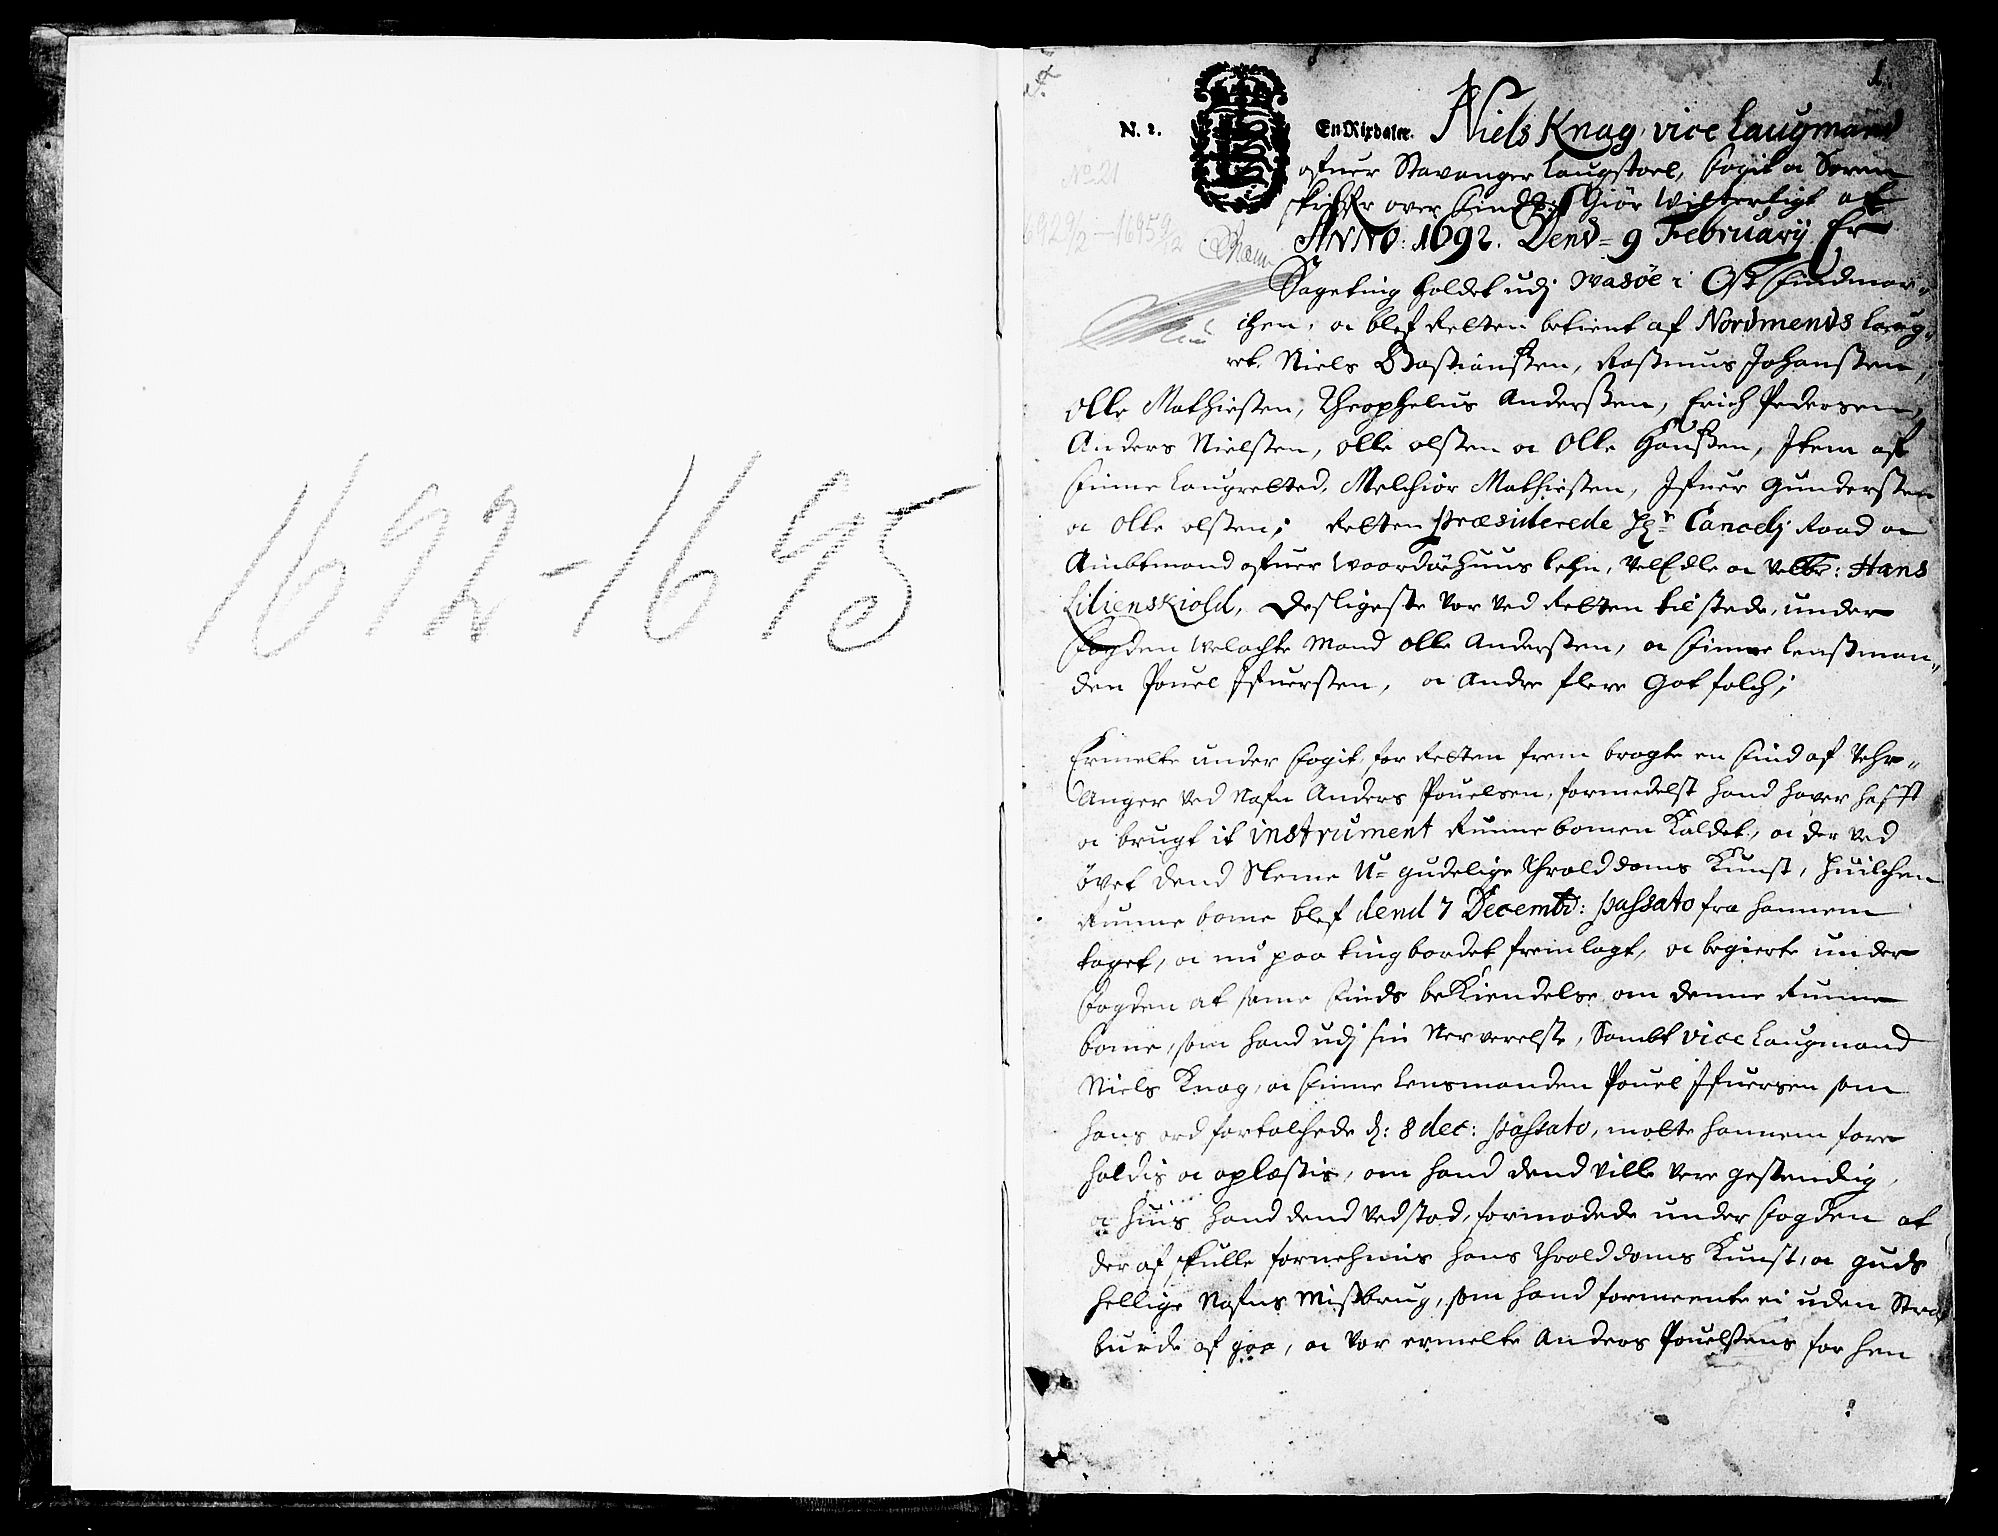 1692-1695
1.
N. 2.
En Rixdaler. Niels Knag vice Laugmand
No 21
ofuer Stavanger Laugstoel, fogit oc Soren
skriffr over findm: Giør Witterligt at
ANNO: 1692. Dend 9 February Er
Sageting holdet udj Wasøe i Ost findmar„
chen, oc blef Retten betient af Nordmends laug„
ret. Niels Bastianssen, Rasmus Johanssen,
Olle Mathiesen, Theophelus Anderssen, Erich Pedersen,
Anders Nielssen, olle olssen oc Olle Hanssen, Item af
finne Laugretted, Melchior Mathiesen, Ifuer Gunderssen
oc olle olssen; Retten præsiderede Hr Cancelj Raad oc
Ambtmand ofuer Waardøehuus lehn, velEdle oc Velbr: Hans
Lilienskiold, Desligeste var ved Retten tilstede, under
fogden Welachte Mand olle Anderssen, oc finne Lensman„
den Pouel Ifuerssen, oc Andre flere Got folch;
Ermelte under fogit, for Retten frem bragte en find af Vehr„
Anger ved Nafn Anders Pouelsen, formedelst hand haver hafft
oc brugt it instrument Runnebomen Kaldet, oc der ved
øvet dend Sleme U-gudelige Throlddoms Kunst, huilchen
Runne bome blef dend 7 Decembr: passato fra hannem
taget, oc nu paa tingbordet fremlagt, oc begierte under
fogden at same finds beKiendelse om denne Runne
bome, som hand udj sin Nerverelse, Sambt vice laugmand
Niels Knag, oc finne Lensmanden Pouel Ifuersen som
hans ord fortolchede d: 8 dec: passato, motte hannem fore
holdis oc oplæsis, om hand dend ville vere gestendig,
oc huis hand dend vedstod, formodede under fogden at
der af skulle fornehmis hans Throlddoms Kunst, oc guds
hellige Nafns Missbrug, som hand formeente ei uden Straf
burde af gaa, oc var ermelte Anders Pouelsens for hen